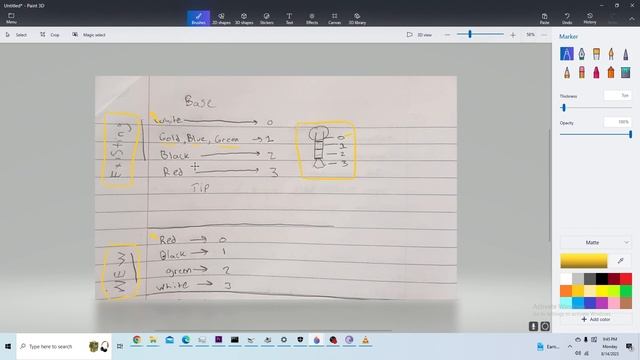 Untitled* - Paint 3D
Menu
Brushes
2D shapes
3D shapes
Stickers
Text
Effects
Canvas
3D library
Paste
Undo
History
Redo
Select
Crop
Magic select
3D view
56%
Marker
Thickness
Opacity
100%
Matte
Add color
Base
white → 0
Gold, Blue, Green → 1
Black → 2
Red → 3
Tip
Existing
0
1
2
3
Red → 0
Black → 1
green → 2
white → 3
NEW
Activate Windows
Type here to search
Earn...
9:45 PM
Monday
8/14/2023